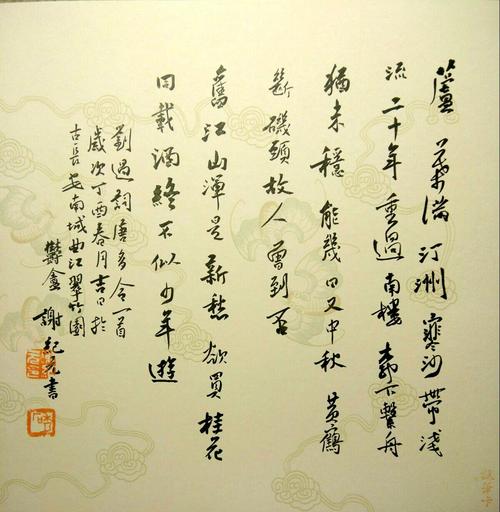 蘆葉滿汀洲寒沙帶淺
流二十年重過南樓柳下繫舟
猶未穩能幾日又中秋黃鶴
斷磯頭故人曾到否
舊江山渾是新愁欲買桂花
同載酒終不似少年遊
劉過詞唐多令一首
歲次丁酉春月吉日於
古長安南城曲江翠竹園
謝紀元書